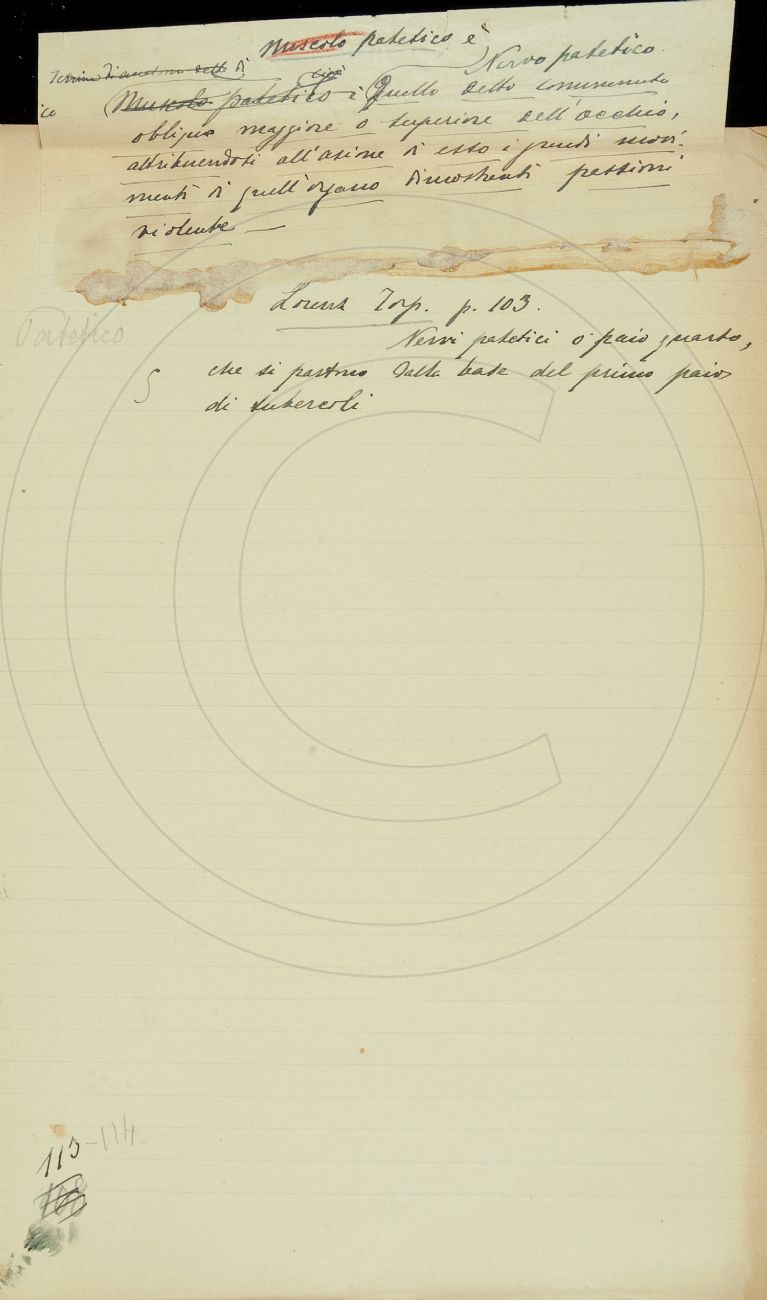 Muscolo patetico è
Nervo patetico.
Termine di
cioè
Muscolo patetico è Quello detto comunemente
obliquo maggiore o superiore dell'occhio,
attribuendosi all'azione di esso i grandi movi-
menti di quell'organo dimostranti passioni
violente —
Lorenz Torp. p. 103.
Patetico
Nervi patetici o paio quarto,
che si partono dalla base del primo paio
di tubercoli
113-114
108